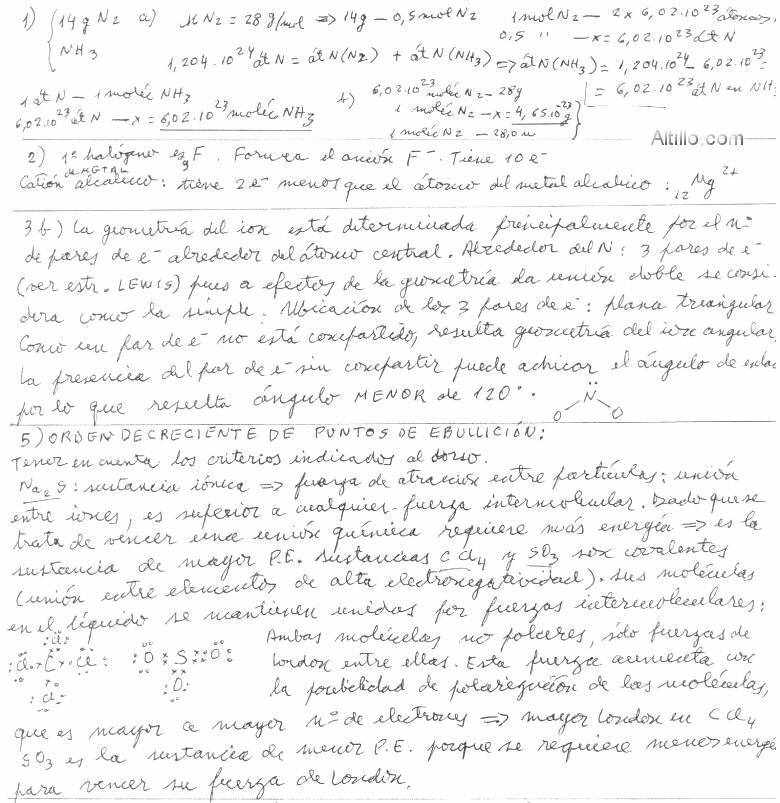 1) { 14 g N2 a) M N2 = 28 g/mol => 14g - 0,5 mol N2 1 mol N2 - 2 x 6,02.10^23 átomos
0,5 " - x = 6,02.10^23 át N
NH3 1,204.10^24 át N = át N (N2) + át N (NH3) => át N (NH3) = 1,204.10^24 - 6,02.10^23 =
= 6,02.10^23 át N en NH3
1 át N - 1 moléc NH3
6,02.10^23 át N - x = 6,02.10^23 moléc NH3
b) 6,02.10^23 moléc N2 - 28g
1 moléc N2 - x = 4,65.10^-23 g
1 moléc N2 - 28,0 u
Altillo.com
2) 1º halógeno es 9F. Forma el anión F-. Tiene 10 e-
Catión alcalino: tiene 2e- menos que el átomo del metal alcalino: 12Mg2+
3 b) La geometría del ion está determinada principalmente por el nº
de pares de e- alrededor del átomo central. Alrededor del N: 3 pares de e-
(ver estr. LEWIS) pues a efectos de la geometría la unión doble se consi-
dera como la simple. Ubicación de los 3 pares de e-: plana triangular
Como un par de e- no está compartido, resulta geometría del ion angular.
La presencia del par de e- sin compartir puede achicar el ángulo de enlac
por lo que resulta ángulo MENOR de 120°.
N
O O
5) ORDEN DECRECIENTE DE PUNTOS DE EBULLICIÓN:
Tener en cuenta los criterios indicados al dorso.
Na2S: sustancia iónica => fuerza de atracción entre partículas: unión
entre iones, es superior a cualquier fuerza intermolecular. Dado que se
trata de vencer una unión química requiere más energía => es la
sustancia de mayor P.E. Sustancias CCl4 y SO3 son covalentes
(unión entre elementos de alta electronegatividad). Sus moléculas
en el líquido se mantienen unidas por fuerzas intermoleculares:
:Cl: Ambas moléculas no polares, sólo fuerzas de
:Cl x C x Cl: :O x S x O: London entre ellas. Esta fuerza aumenta con
:Cl: :O: la posibilidad de polarización de las moléculas,
que es mayor a mayor nº de electrones => mayor London en CCl4
SO3 es la sustancia de menor P.E. porque se requiere menos energía
para vencer su fuerza de London.